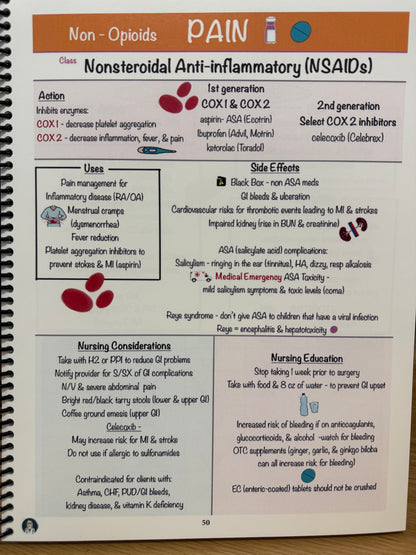 Non - Opioids PAIN
Class Nonsteroidal Anti-inflammatory (NSAIDs)
Action
Inhibits enzymes:
COX1 - decrease platelet aggregation
COX 2 - decrease inflammation, fever, & pain
1st generation
COX1 & COX2
aspirin- ASA (Ecotrin)
Ibuprofen (Advil, Motrin)
ketorolac (Toradol)
2nd generation
Select COX 2 inhibitors
celecoxib (Celebrex)
Uses
Pain management for
Inflammatory disease (RA/OA)
Menstrual cramps
(dysmenorrhea)
Fever reduction
Platelet aggregation inhibitors to
prevent stokes & MI (aspirin)
Side Effects
Black Box - non ASA meds
GI bleeds & ulceration
Cardiovascular risks for thrombotic events leading to MI & strokes
Impaired kidney (rise in BUN & creatinine)
ASA (salicylate acid) complications:
Salicylism - ringing in the ear (tinnitus), HA, dizzy, resp alkalosis
Medical Emergency ASA Toxicity -
mild salicylism symptoms & toxic levels (coma)
Reye syndrome - don't give ASA to children that have a viral infection
Reye = encephalitis & hepatotoxicity
Nursing Considerations
Take with H2 or PPI to reduce GI problems
Notify provider for S/SX of GI complications
N/V & severe abdominal pain
Bright red/black tarry stools (lower & upper GI)
Coffee ground emesis (upper GI)
Celecoxib -
May increase risk for MI & stroke
Do not use if allergic to sulfonamides
Contraindicated for clients with:
Asthma, CHF, PUD/GI bleeds,
kidney disease, & vitamin K deficiency
Nursing Education
Stop taking 1 week prior to surgery
Take with food & 8 oz of water - to prevent GI upset
Increased risk of bleeding if on anticoagulants,
glucocorticoids, & alcohol -watch for bleeding
OTC supplements (ginger, garlic, & ginkgo biloba
can all increase risk for bleeding)
EC (enteric-coated) tablets should not be crushed
50